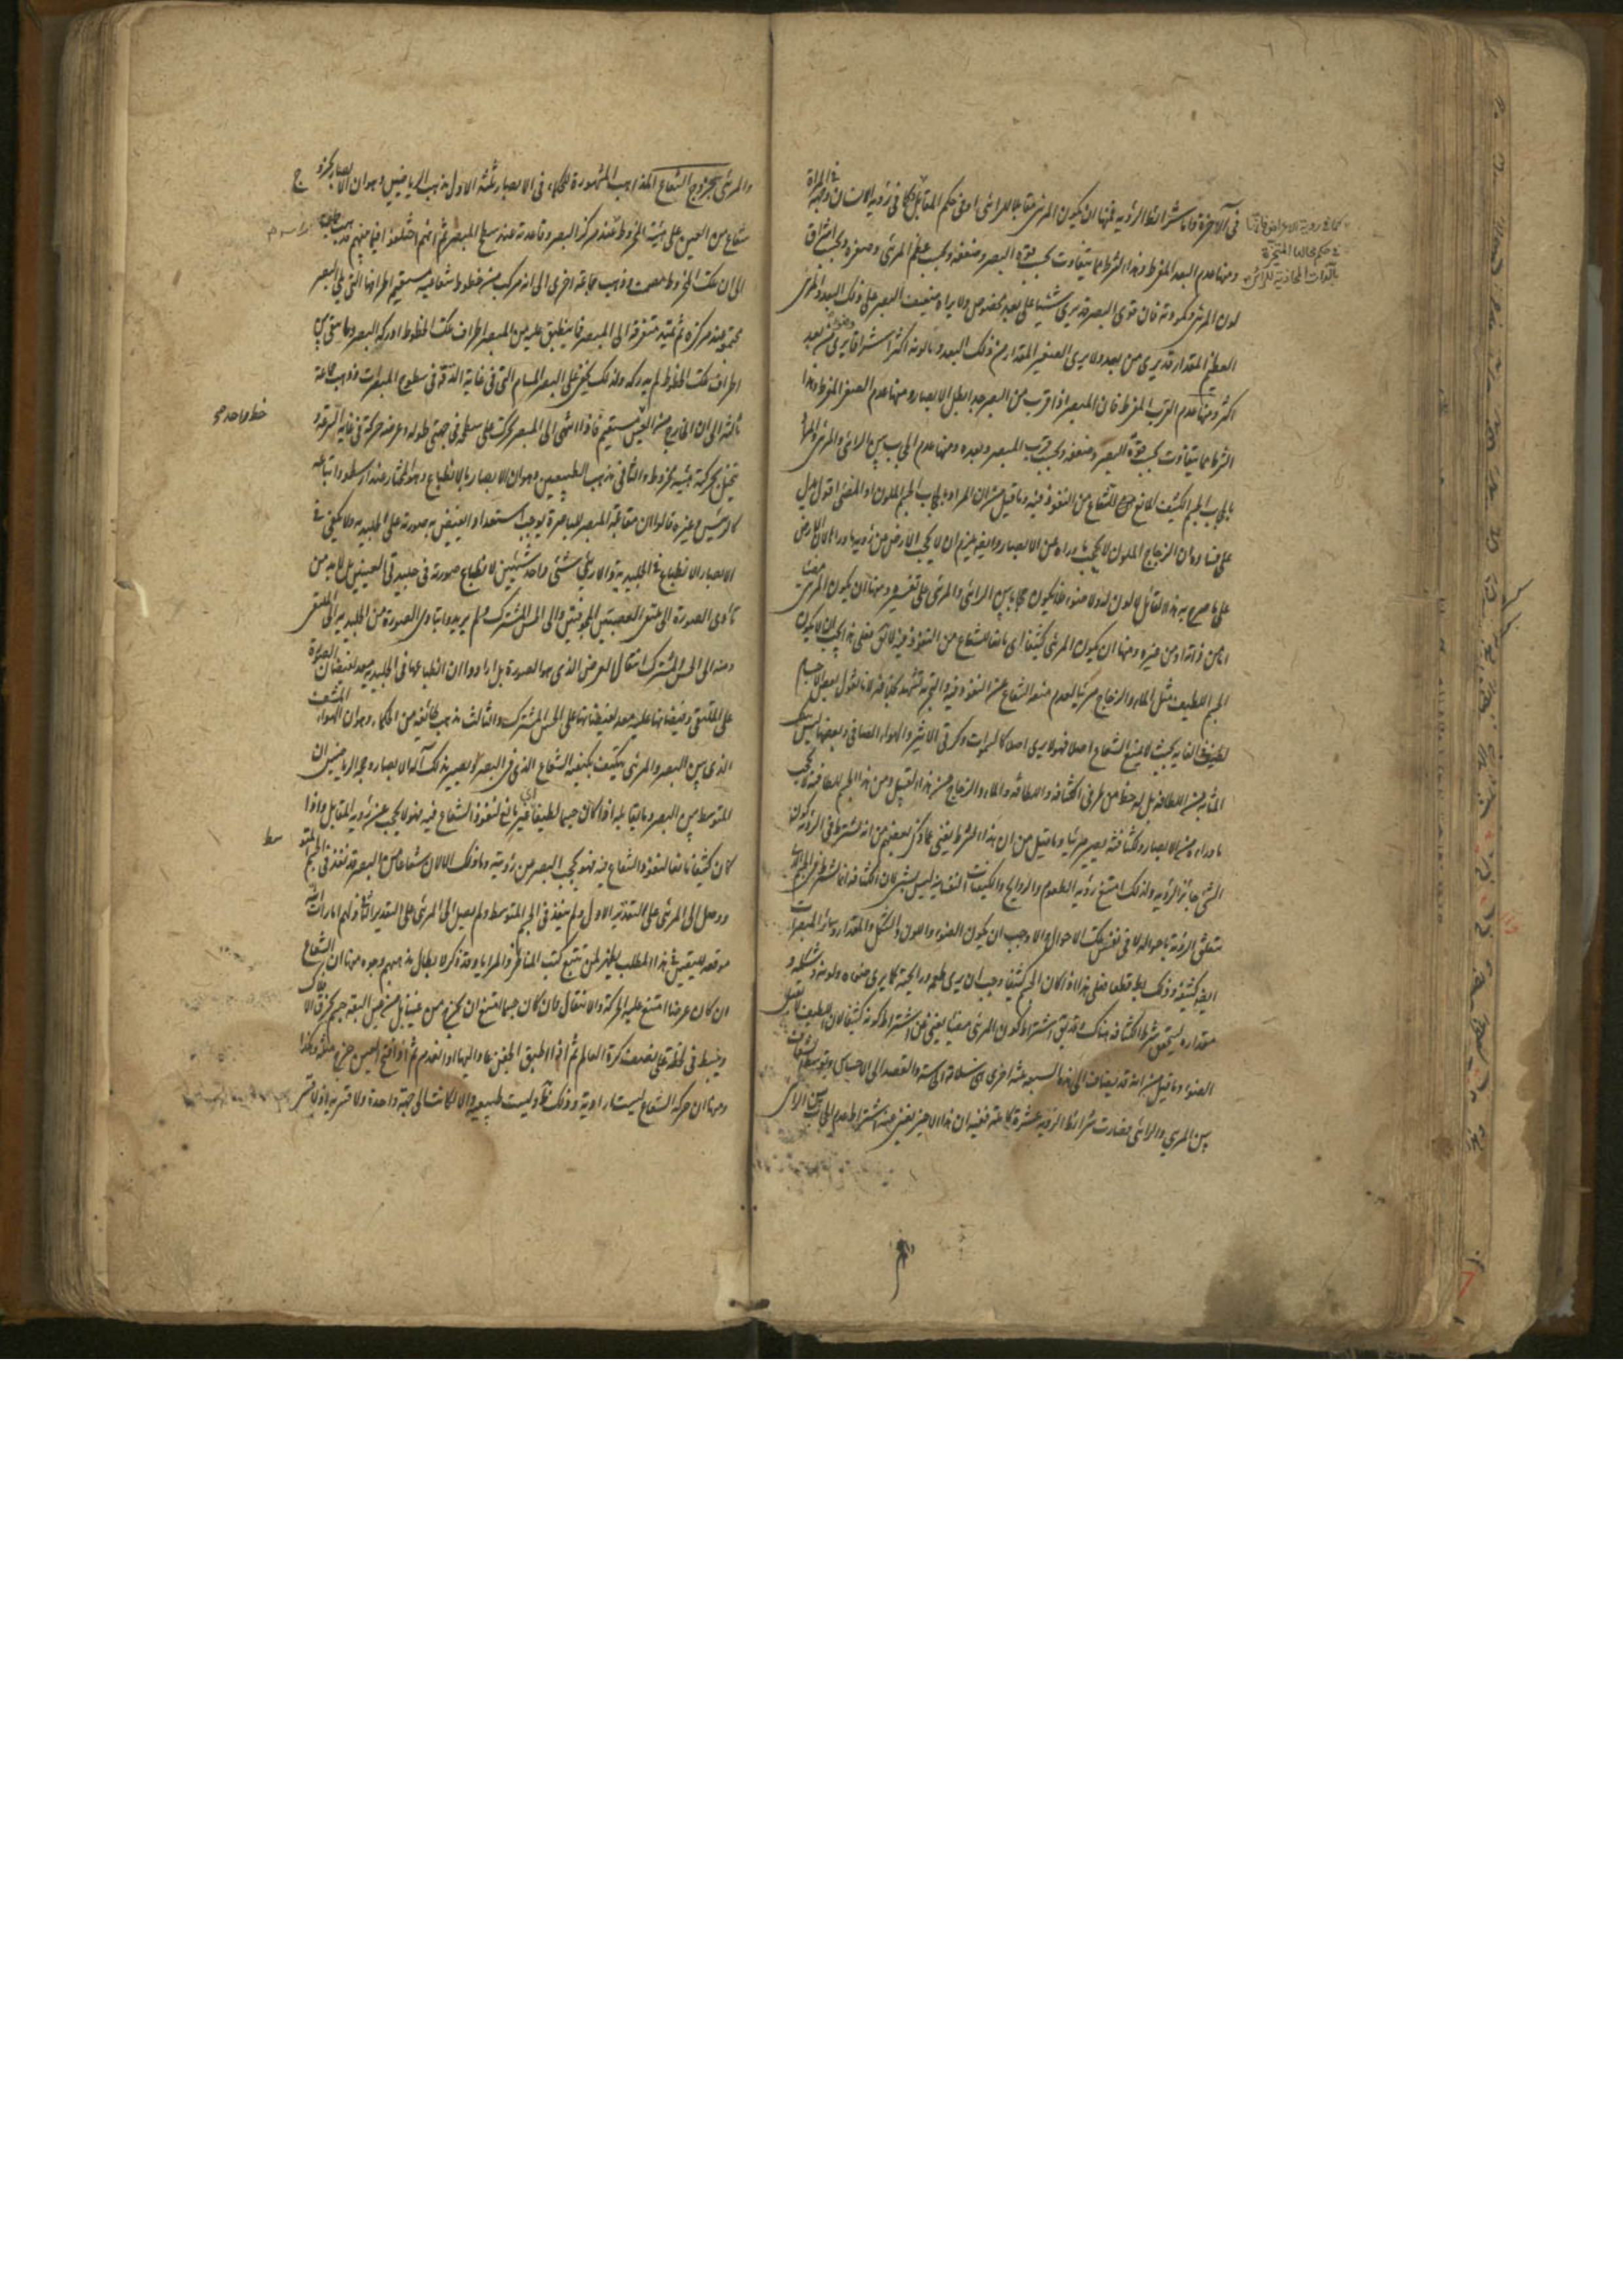 في الآخرة واما شرائط الرؤية فمنها ان يكون المرئي مقابلا للرائي او في حكم المقابل كما في رؤية الانسان وجهه في المرآة
ومنها عدم البعد المفرط وهذا الشرط مما يتفاوت بحسب قوة البصر وضعفه وبحسب عظم المرئي وصغره وبحسب اشراق
لون المرئي وكمودته فان قوى البصر قد يرى شيئا على بعد مخصوص ولا يراه ضعيف البصر على ذلك البعد والمرئي
العظيم المقدار قد يرى من بعد ولا يرى الصغير المقدار من ذلك البعد وما لونه اكثر اشراقا يرى من بعد
اكثر ومنها عدم القرب المفرط فان المبصر اذا قرب من البصر جدا بطل الابصار ومنها عدم الصغر المفرط وهذا
الشرط مما يتفاوت بحسب قوة البصر وضعفه وبحسب قرب المبصر وبعده ومنها عدم الحجاب بين الرائي والمرئي والمراد
بالحجاب الجسم الكثيف المانع للشعاع من النفوذ فيه وما قيل من ان المراد بالحجاب الجسم الملون او المضئ اقول يدل
على فساده ان الزجاج الملون لا يحجب ما وراءه عن الابصار وايضا يلزم ان لا يحجب الارض من رؤية ما وراءها لان الارض
على ما صرح به هذا القائل لا لون لها ولا ضوء فلا يكون حجابا بين الرائي والمرئي على تفسيره ومنها ان يكون المرئي مضيئا
اما من ذاته او من غيره ومنها ان يكون المرئي كثيفا اى مانعا للشعاع من النفوذ فيه لا يقال فعلى هذا يجب ان لا يكون
الجسم اللطيف مثل الماء والزجاج مرئيا لعدم منعه الشعاع عن النفوذ فيه والتجربة تشهد بخلافه لانا نقول بعض الاجسام
لطيف في الغاية بحيث لا يمنع الشعاع اصلا فهو لا يرى اصلا كالسموات وكرتى الاثير والهواء الصافى وبعضها ليس
بتلك المثابة من اللطافة بل له حظ من طرفى الكثافة واللطافة والماء والزجاج من هذا القبيل ومن هذا الجسم للطافته لا يحجب
ما وراءه من الابصار ولكثافته يصير مرئيا وما قيل من ان هذا الشرط يغنى عما ذكره بعضهم من انه يشترط في الرؤية كون
الشئ جائز الرؤية ولذلك امتنع رؤية الطعوم والروايح والكيفيات النفسانية ليس بشئ لان الكثافة انما تشترط في الجسم الذى
يتعلق الرؤية باحواله لا في نفس تلك الاحوال والا وجب ان يكون الضوء واللون والشكل والمقدار وسائر المبصرات
ايضا كثيفة وذلك بط قطعا فعلى هذا اذا كان الجسم كثيفا وجب ان يرى طعمه ورايحته كما يرى ضوءه ولونه وشكله و
مقداره لتحقق شرط الكثافة هناك وقد يقال اشتراط كون المرئي مضيئا يغنى عن اشتراط كونه كثيفا لان اللطيف لا يقبل
الضوء وما قيل من انه قد يضاف الى هذه السبعة ثلثة اخرى هي سلامة الحاسة والقصد الى الاحساس وتوسط الشفاف
بين المرئي والرائي فصارت شرائط الرؤية عشرة كاملة ففيه ان هذا الاخير يغنى عنه اشتراط عدم الحجاب بين الرائي
والمرئي بخروج الشعاع المذاهب المشهورة للحكماء في الابصار ثلثة الاول مذهب الرياضيين وهو ان الابصار بخروج
شعاع من العين على هيئة المخروط عند مركز البصر وقاعدته عند سطح المبصر ثم انهم اختلفوا فيما بينهم فذهب جماعة
الى ان تلك المخروط مصمت وذهب جماعة اخرى الى انه مركب من خطوط شعاعية مستقيمة اطرافها التى تلى البصر
مجتمعة عند مركزه ثم يمتد متفرقة الى المبصر فما ينطبق عليه من المبصر اطراف تلك الخطوط ادركه البصر وما بقى بين
اطراف تلك الخطوط لم يدركه ولذلك يخفى على البصر المسام التى في غاية الدقة في سطوح المبصرات وذهب جماعة
ثالثة الى ان الخارج من العين مستقيم فاذا انتهى الى المبصر تحرك على سطحه في جهتى طوله وعرضه حركة في غاية السرعة و
خط واحد صح
يتخيل بحركته هيئة مخروط والثانى مذهب الطبيعيين وهو ان الابصار بالانطباع وهو المختار عند ارسطو واتباعه
كالرئيس وغيره قالوا ان مقابلة المبصر للباصرة يوجب استعدادا يفيض به صورته على الجليدية ولا يكفى في
الابصار الانطباع في الجليدية والا رئي شئ واحد شيئين لانطباع صورته في جليديتى العينين بل لابد من
تأدى الصورة الى ملتقى العصبتين المجوفتين والى الحس المشترك ولم يريدوا بتأدى الصورة من الجليدية الى الملتقى
ومنه الى الحس المشترك انتقال العرض الذى هو الصورة بل ارادوا ان انطباعها في الجليدية معد لفيضان الصورة
على الملتقى وفيضانها عليه معد لفيضانها على الحس المشترك والثالث مذهب طائفة من الحكماء وهو ان الهواء المشف
الذى بين البصر والمرئي يتكيف بكيفية الشعاع الذى في البصر ويصير بذلك آلة الابصار وحجة الرياضيين ان
المتوسط بين البصر وما يقابله اذا كان جسما لطيفا اى غير مانع لنفوذ الشعاع فيه فهو لا يحجب عن رؤية المقابل واذا
كان كثيفا مانعا لنفوذ الشعاع فيه فهو يحجب البصر من رؤيته وما ذلك الا لان شعاعا من البصر قد نفذ في الجسم المتوسط
ووصل الى المرئي على التقدير الاول ولم ينفذ في الجسم المتوسط ولم يصل الى المرئي على التقدير الثانى ولهم امارات
موقعة لليقين في هذا المطلب يظهر لمن تتبع كتب المناظر والمرايا وقد ذكر لابطال مذهبهم وجوه منها ان الشعاع
ان كان عرضا امتنع عليه الحركة والانتقال وان كان جسما امتنع ان يخرج من عيننا بل من عين البقة جسم يخرق الافلاك
وينبسط في لحظة على نصف كرة العالم ثم اذا اطبق الجفن عاد اليها او انعدم ثم اذا فتح العين خرج مثله وهكذا
ومنها ان حركة الشعاع ليست ارادية وذلك ظ وليست طبيعية والا لكانت الى جهة واحدة ولا قسرية اذ لا قسر